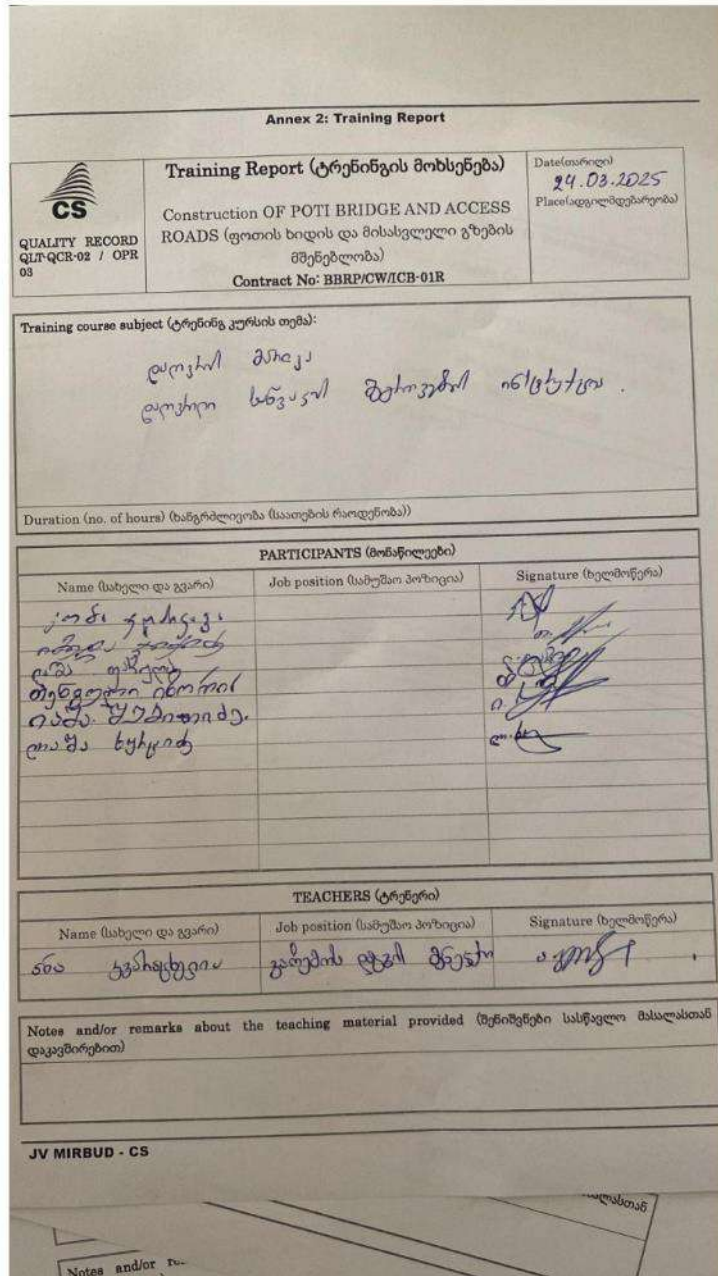 Annex 2: Training Report
CS
QUALITY RECORD
QLT-QCR-02 / OPR
03
Training Report (ტრენინგის მოხსენება)
Construction OF POTI BRIDGE AND ACCESS
ROADS (ფოთის ხიდის და მისასვლელი გზების
მშენებლობა)
Contract No: BBRP/CW/ICB-01R
Date(თარიღი)
24.03.2025
Place(ადგილმდებარეობა)
Training course subject (ტრენინგ კურსის თემა):
დაღვრის
დაღვრილი საწვავის
Duration (no. of hours) (ხანგრძლივობა (საათების რაოდენობა))
PARTICIPANTS (მონაწილეები)
Name (სახელი და გვარი) Job position (სამუშაო პოზიცია) Signature (ხელმოწერა)
თენგიზი
იაშა
ლაშა ხურცია
TEACHERS (ტრენერი)
Name (სახელი და გვარი) Job position (სამუშაო პოზიცია) Signature (ხელმოწერა)
ანა კვარაცხელია გარემოს დაცვის
Notes and/or remarks about the teaching material provided (შენიშვნები სასწავლო მასალასთან
დაკავშირებით)
JV MIRBUD - CS
ალასთან
Notes and/or